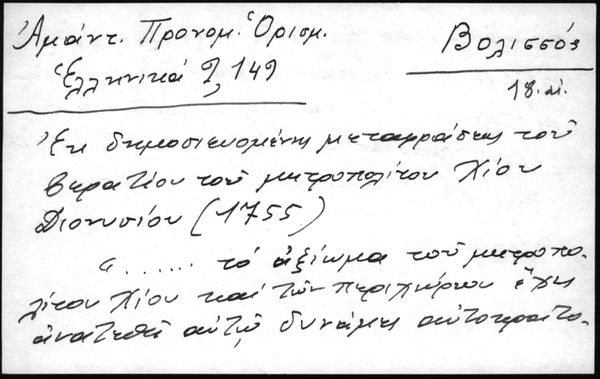 Ἀμάντ. Προνομ. Ὁρισμ.
Ἑλληνικά 9, 149
Βολισσός
18. αἰ.
Ἐκ δημοσιευομένης μεταφράσεως τοῦ
βερατίου τοῦ μητροπολίτου Χίου
Διονυσίου (1755)
"...... τό ἀξίωμα τοῦ μητροπο-
λίτου Χίου καί τῶν περιχώρων ἔχει
ἀνατεθῆ αὐτῷ δυνάμει αὐτοκρατο-